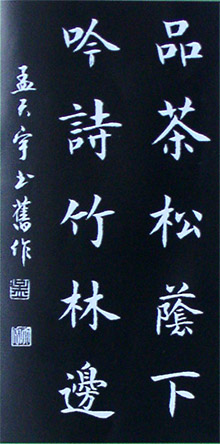 品茶松蔭下
吟詩竹林邊
孟天宇书舊作